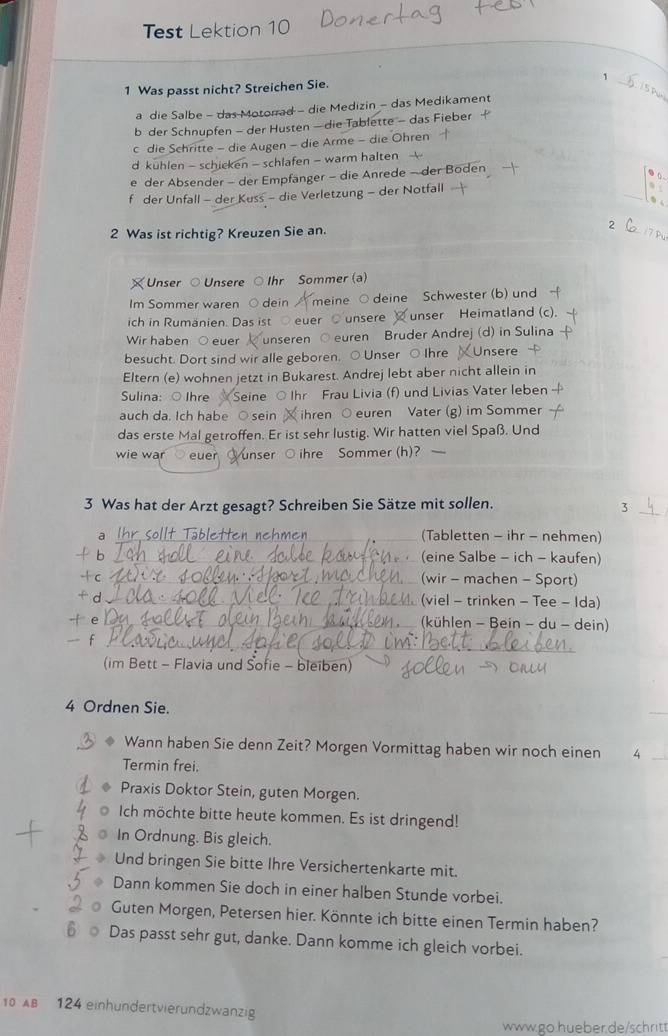 Test Lektion 10 Donertag test
1 Was passt nicht? Streichen Sie.
1 5 /5 Pun
a die Salbe – das Motorrad – die Medizin – das Medikament
b der Schnupfen – der Husten – die Tablette – das Fieber +
c die Schritte – die Augen – die Arme – die Ohren +
d kühlen – schicken – schlafen – warm halten +
e der Absender – der Empfänger – die Anrede – der Boden +
f der Unfall – der Kuss – die Verletzung – der Notfall +
2 Was ist richtig? Kreuzen Sie an.
2 6 /7 Pu
Unser Unsere Ihr Sommer (a)
Im Sommer waren dein meine deine Schwester (b) und +
ich in Rumänien. Das ist euer unsere unser Heimatland (c). +
Wir haben euer unseren euren Bruder Andrej (d) in Sulina +
besucht. Dort sind wir alle geboren. Unser Ihre Unsere +
Eltern (e) wohnen jetzt in Bukarest. Andrej lebt aber nicht allein in
Sulina: Ihre Seine Ihr Frau Livia (f) und Livias Vater leben +
auch da. Ich habe sein ihren euren Vater (g) im Sommer +
das erste Mal getroffen. Er ist sehr lustig. Wir hatten viel Spaß. Und
wie war euer unser ihre Sommer (h)? –
3 Was hat der Arzt gesagt? Schreiben Sie Sätze mit sollen.
3 4
a Ihr sollt Tabletten nehmen. (Tabletten – ihr – nehmen)
+ b Ich soll eine Salbe kaufen. (eine Salbe – ich – kaufen)
+ c Wir sollen Sport machen. (wir – machen – Sport)
+ d Ida soll viel Tee trinken. (viel – trinken – Tee – Ida)
+ e Du sollst dein Bein kühlen. (kühlen – Bein – du – dein)
– f Flavia und Sofie sollt im Bett bleiben.
(im Bett – Flavia und Sofie – bleiben) → sollen → они
4 Ordnen Sie.
4
3 Wann haben Sie denn Zeit? Morgen Vormittag haben wir noch einen
Termin frei.
1 Praxis Doktor Stein, guten Morgen.
4 Ich möchte bitte heute kommen. Es ist dringend!
+ 8 In Ordnung. Bis gleich.
7 Und bringen Sie bitte Ihre Versichertenkarte mit.
5 Dann kommen Sie doch in einer halben Stunde vorbei.
2 Guten Morgen, Petersen hier. Könnte ich bitte einen Termin haben?
6 Das passt sehr gut, danke. Dann komme ich gleich vorbei.
10 AB 124 einhundertvierundzwanzig
www.go.hueber.de/schritt